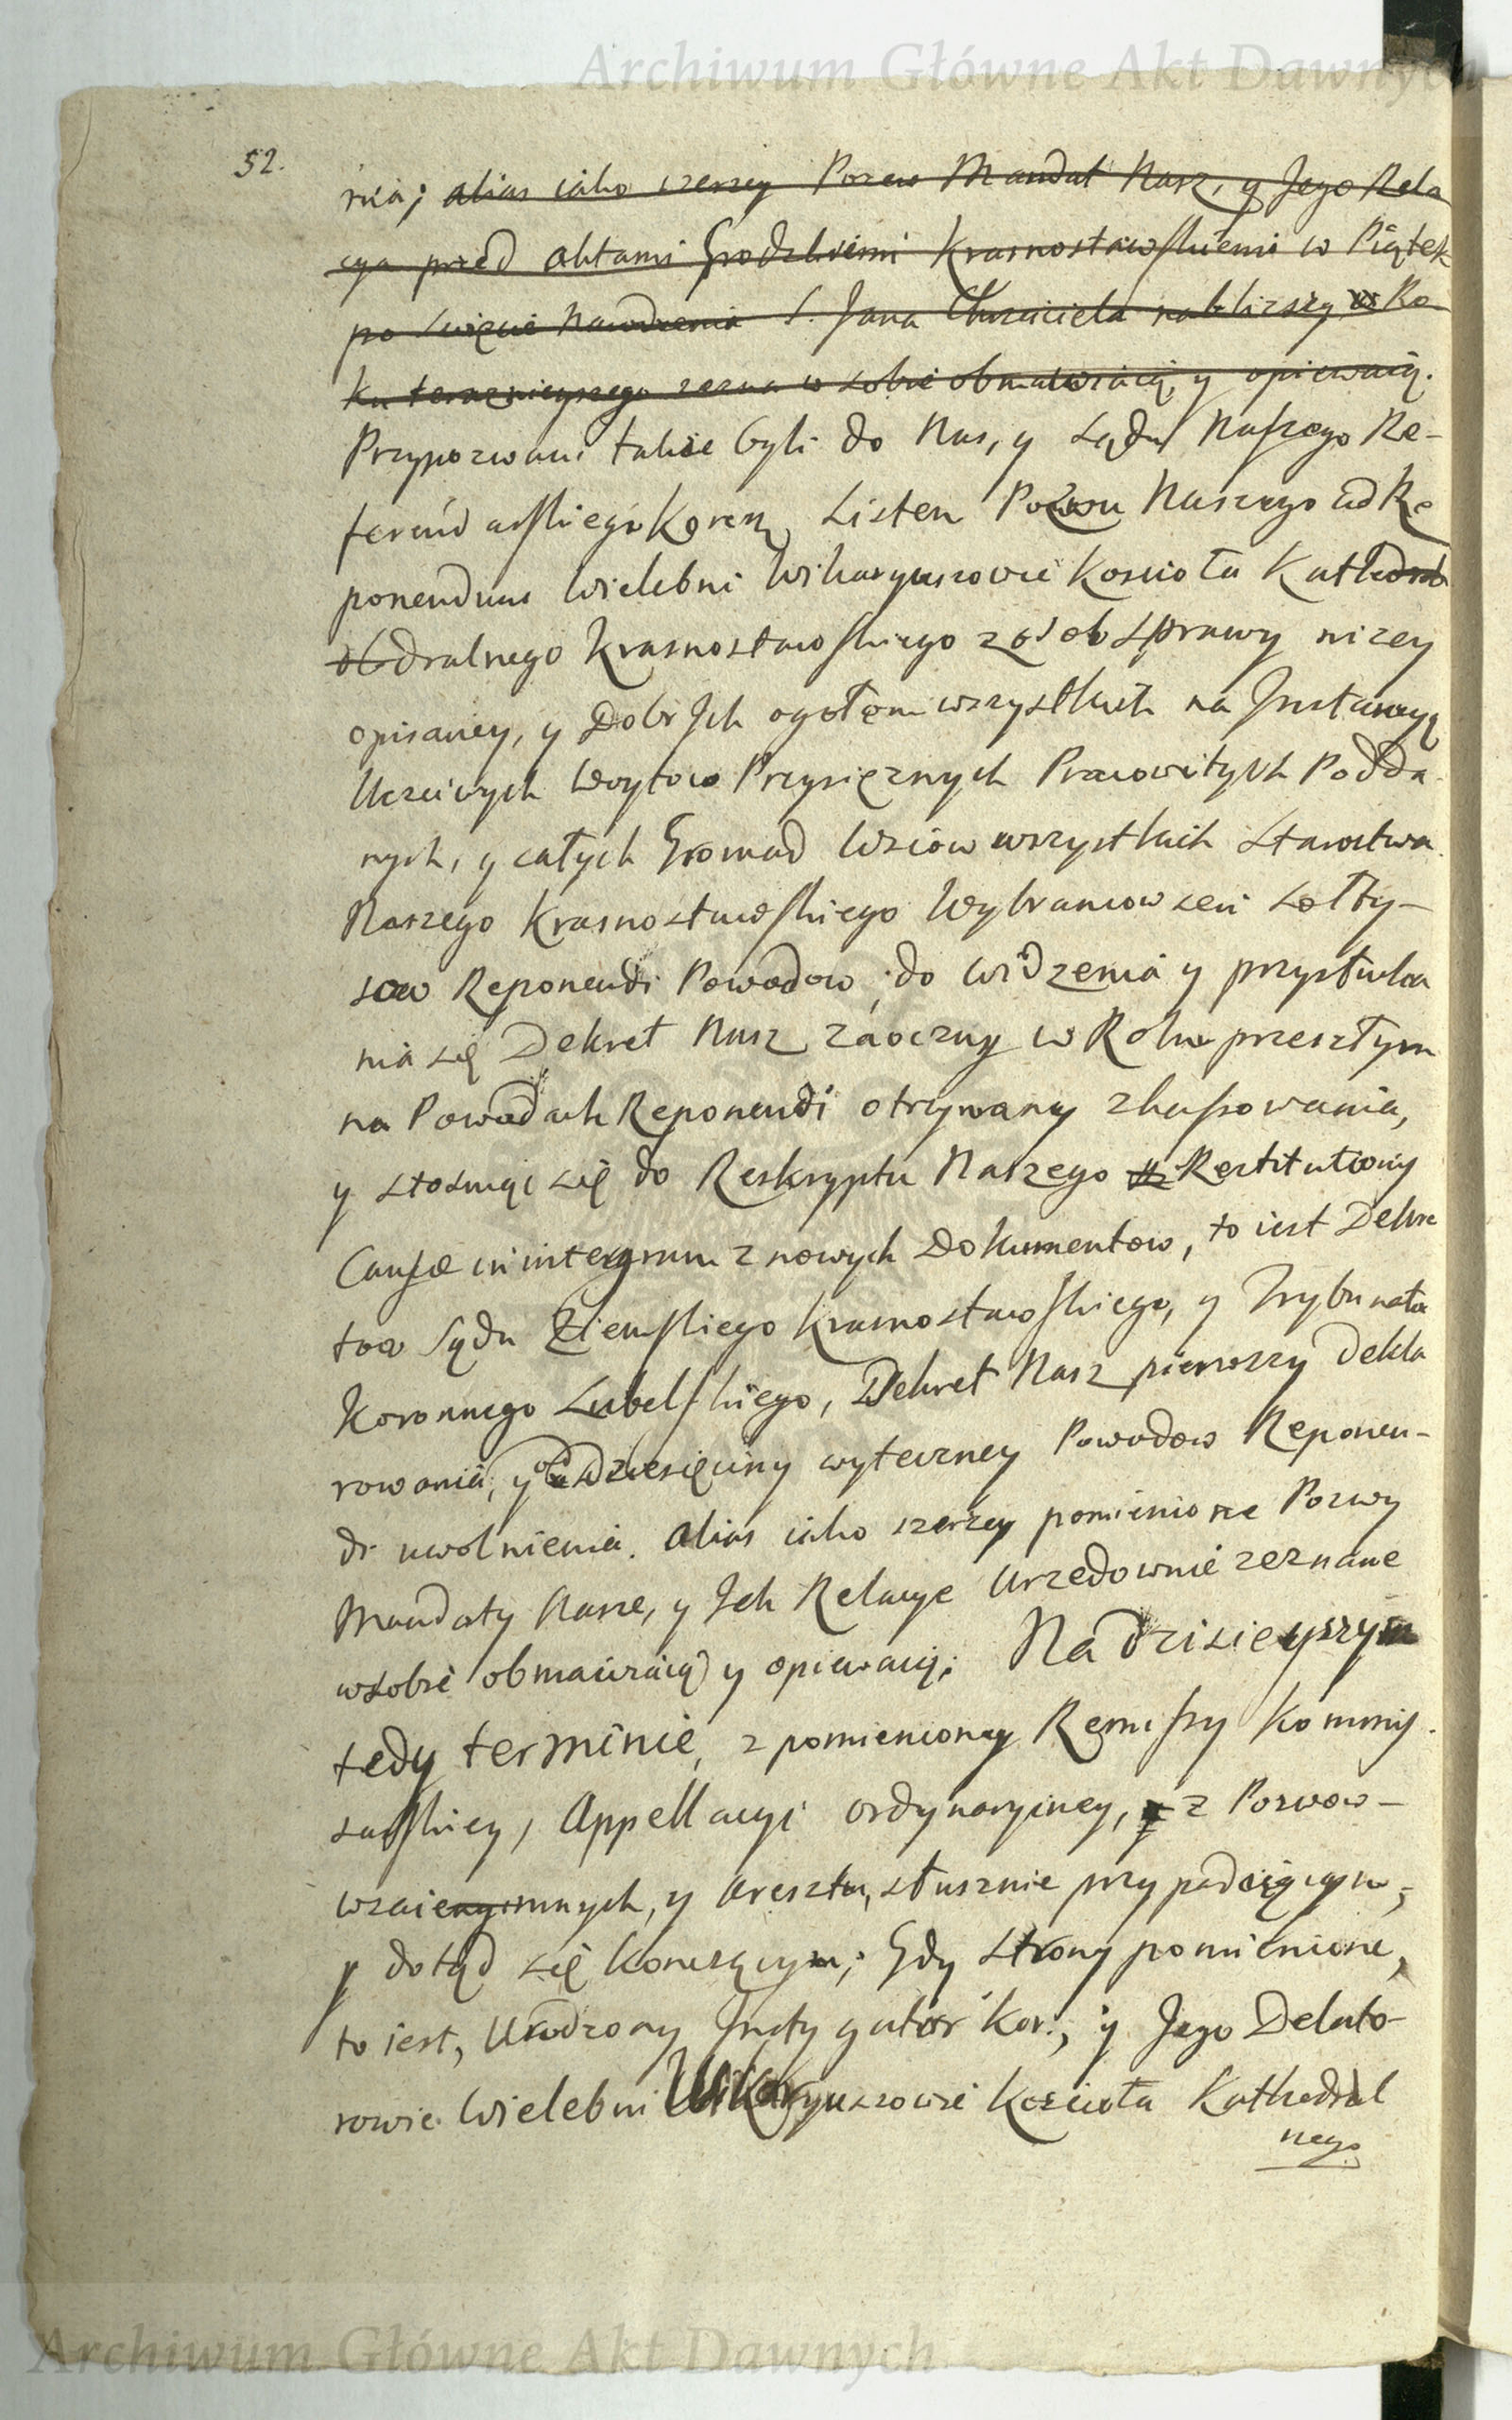 Archiwum Główne Akt Dawnych
52.
nia; alias iako szerzey Pozew Mandat Nasz, y Jego Rela
cya przed Aktami Grodzkiemi Krasnostawskiemi w Piątek
po Swięcie Narodzenia S. Jana Chrzciciela nablizszy w Ro
ku teraznieyszego zezna w sobie obmawiaią, y opiewaią.
Przypozwani takie byli do Nas, y Sądu Naszego Re-
ferendarskiego Koron. Listem Pozwu Naszego ad Re
ponendum Wielebni Wikaryuszowie Koscioła Kathedrah
dralnego Krasnostawskiego z osob Sprawy nizey
opisaney, y Dobr Ich ogołem wszystkich na Instancyą
Uczciwych Woytow Przysięznych Pracowitych Podda
nych, y całych Gromad Wsiow wszystkich Starostwa
Naszego Krasnostawskiego Wybraniow seu Sołty-
sow Reponendi Powodow, do widzenia y przysłucha
nia się Dekret Nasz zaoczny w Roku przeszłym
na Powodach Reponendi otrzymany zkassowania,
y stosuiąc się do Reskryptu Naszego Restitutiony
Causæ in integrum z nowych Dokumentow, to iest Dekre
tow Sądu Ziemskiego Krasnostawskiego, y Trybunału
Koronnego Lubelskiego, Dekret Nasz pierwszy Dekla
rowania, y od Dziesięciny wyteczney Powodow Reponen-
di uwolnienia. Alias iako szerzey pomienione Pozwy
Mandaty Nasze, y Ich Relacye Urzędownie zeznane
w sobie obmawiaią y opiewaią; Na dzisieyszym
tedy terminie, z pomienioney Remissy Kommis
sarskiey, Appellacyi ordynaryiney, z Pozwow
wzaiemnych, y Aresztu, słusznie przypadaiącym,
y dotąd się konczącym; Gdy Strony pomienione,
to iest, Urodzony Instygator Kor., y Jego Delato-
rowie Wielebni Wikaryuszowie Koscioła Kathedral
nego
Archiwum Główne Akt Dawnych